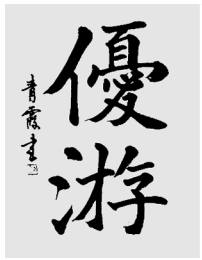 優游
青霞書